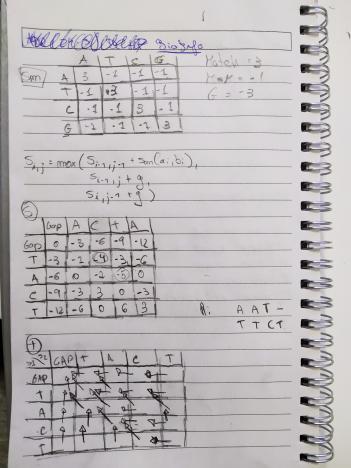 Bioinfo
A T C G
Sim A 3 -1 -1 -1
T -1 3 -1 -1
C -1 -1 3 -1
G -1 -1 -1 3
Match = 3
= -1
G = -3
Si,j = max( Si-1,j-1 + sm(ai,bi),
Si-1,j + g,
Si,j-1 + g )
S
Gap A C T A
Gap 0 -3 -6 -9 -12
T -3 -1 -4 -3 -6
A -6 0 -2 -5 0
C -9 -3 3 0 -3
T -12 -6 0 6 3
R: A A T -
T T C T
T
GAP T A C T
GAP
T
A
C
T